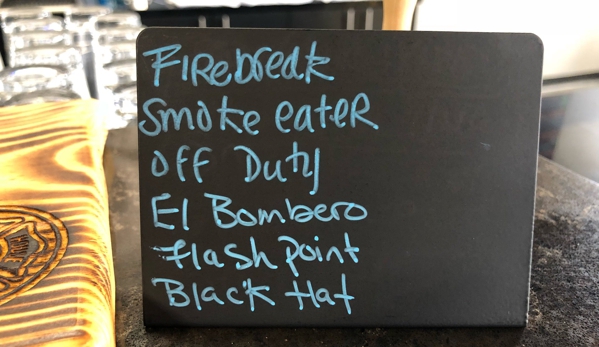 Firebreak
Smoke eater
Off Duty
El Bombero
Flash point
Black Hat